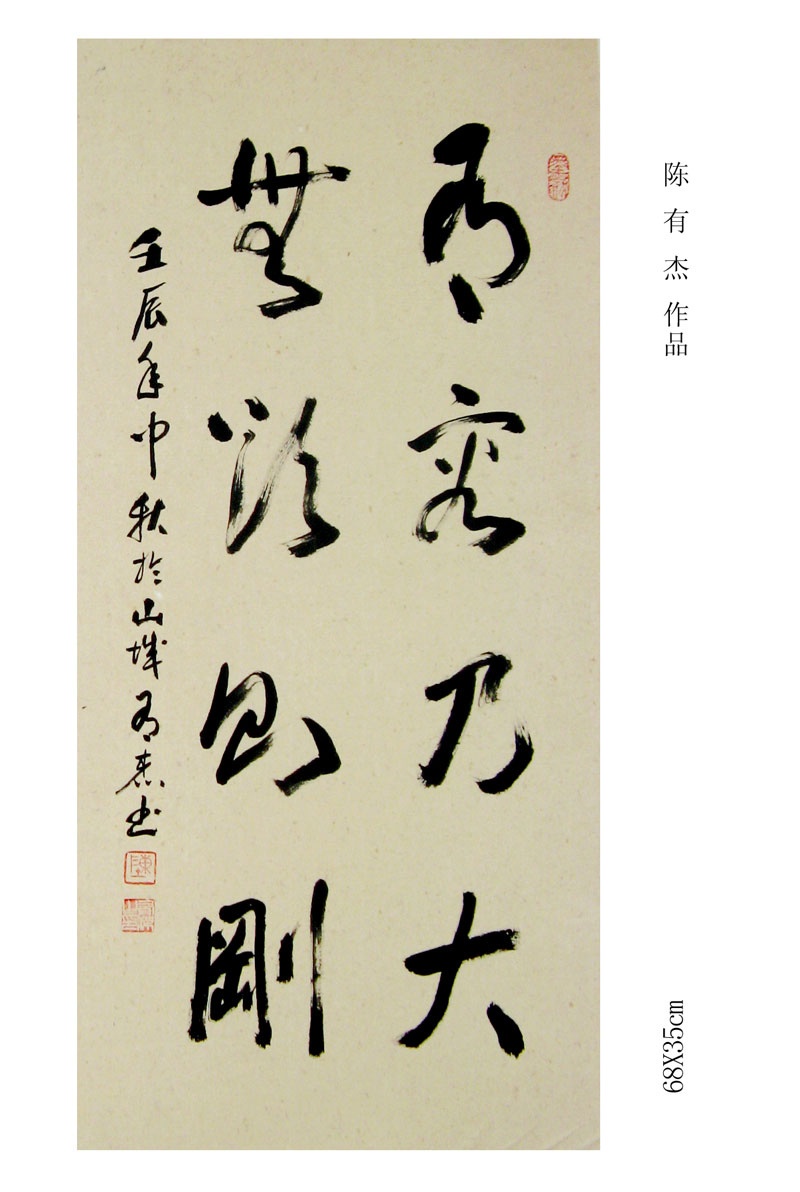 有容乃大
無欲則剛
壬辰年中秋於山城有杰书
陈有杰作品
68X35cm